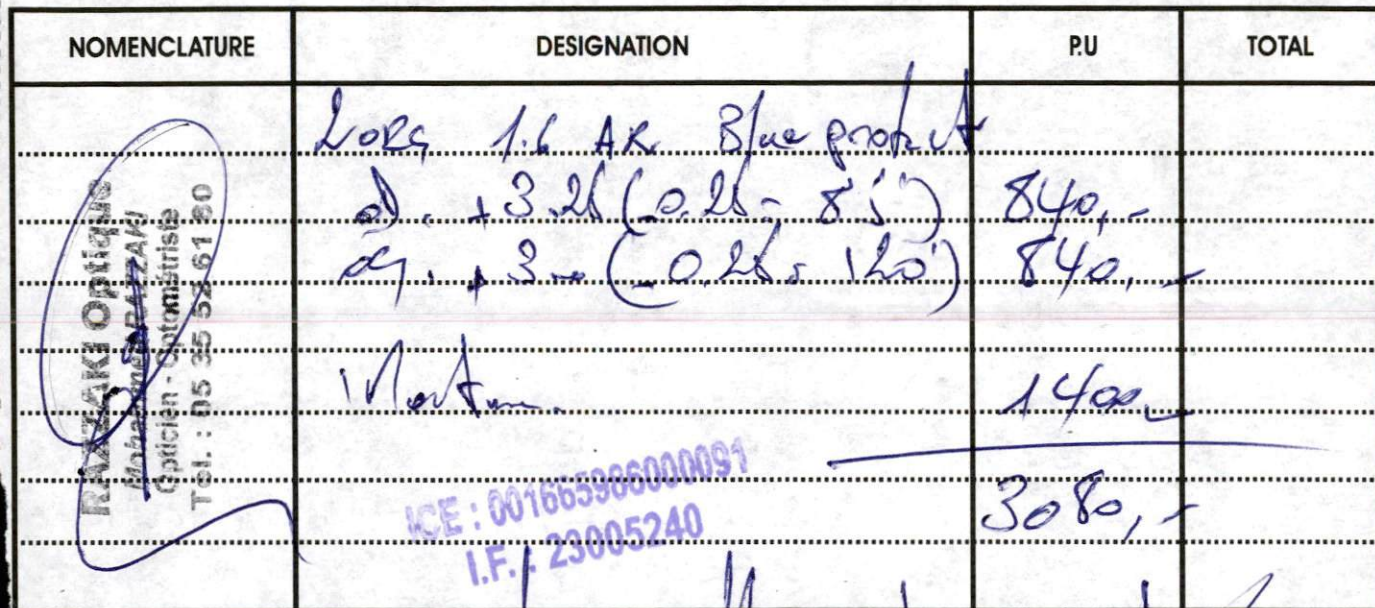 NOMENCLATURE DESIGNATION P.U TOTAL
1.6 AR Blue protect
OD. +3.25 (-0.25 à 85°) 840,-
OG. +3.00 (-0.25 à 120°) 840,-
Monture 1400,-
3080,-
RAZZAKI Optique
Mohammed RAZZAKI
Opticien - Optométriste
Tél. : 05 35 52 61 80
ICE : 001665986000091
I.F. : 23005240